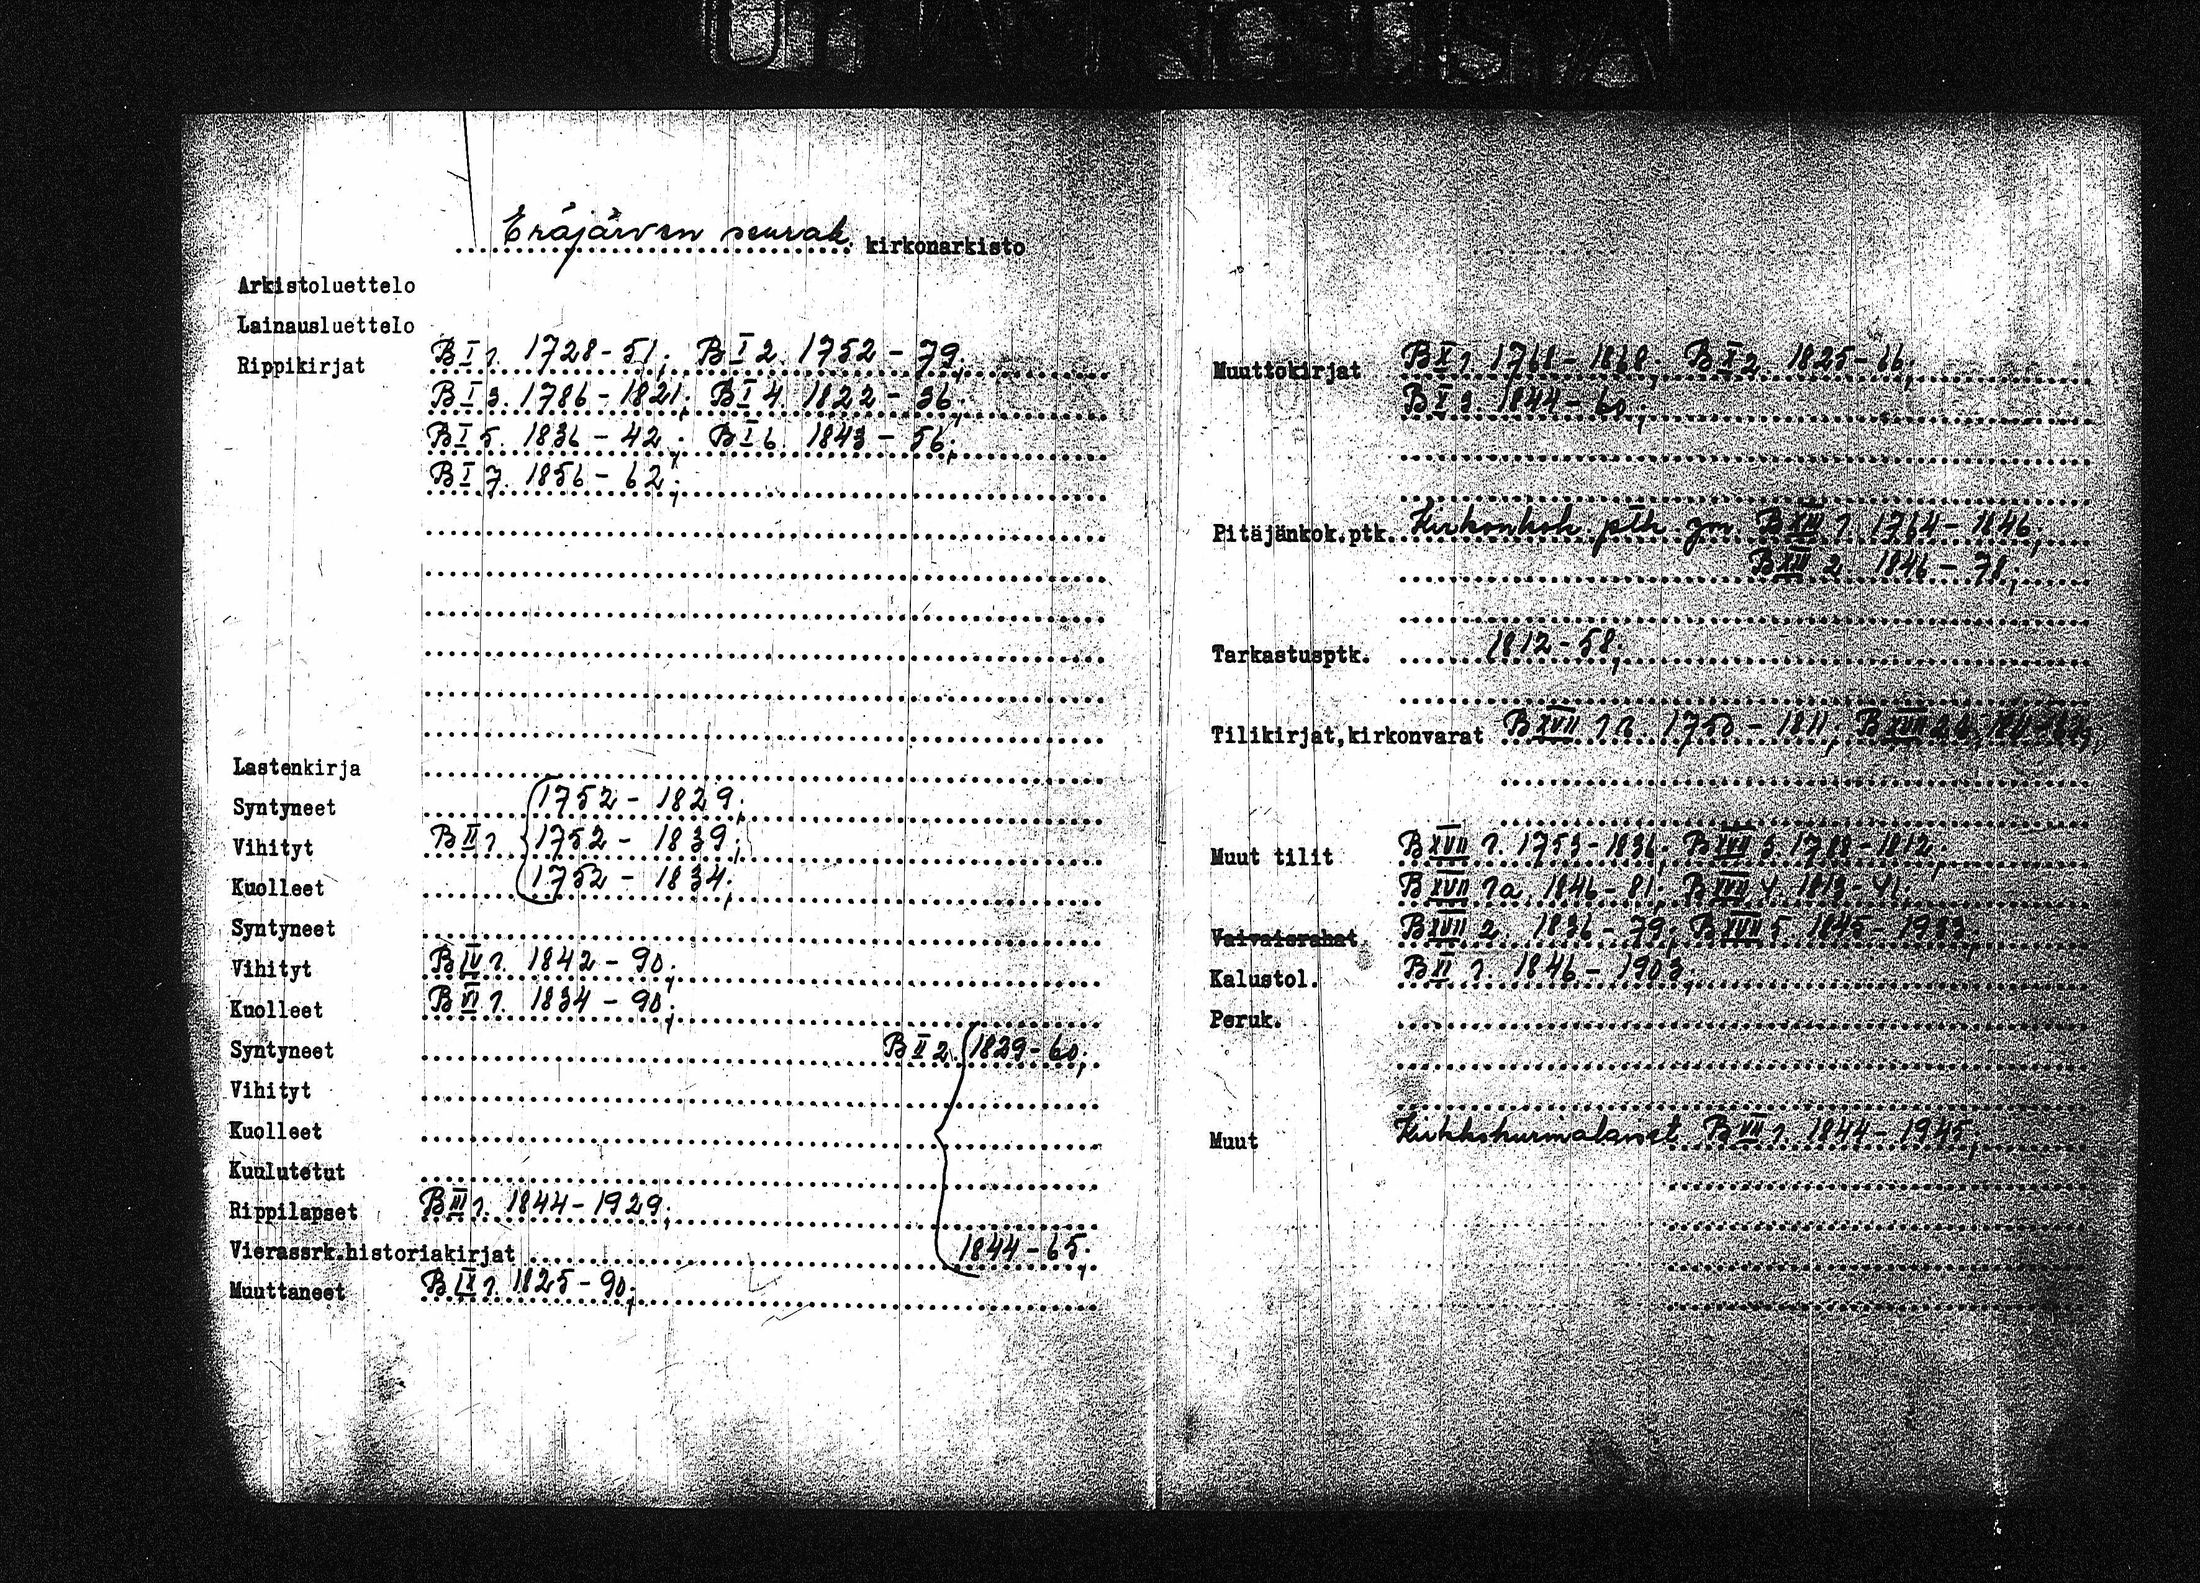 Eräjärven seurak. kirkonarkisto
Arkistoluettelo
Lainausluettelo
Rippikirjat B I 1. 1728-51; B I 2. 1752-79;
B I 3. 1786-1821; B I 4. 1822-36;
B I 5. 1836-42; B I 6. 1843-56;
B I 7. 1856-62;
Lastenkirja
Syntyneet 1752-1829;
Vihityt B II 1 1752-1839;
Kuolleet 1752-1834;
Syntyneet
Vihityt B IV 1. 1842-90;
Kuolleet B VI 1. 1834-90;
Syntyneet B II 2. 1829-60;
Vihityt
Kuolleet
Kuulutetut
Rippilapset B III 1. 1844-1929;
Vierassrk.historiakirjat 1844-65;
Muuttaneet B IX 1. 1825-90;
Muuttokirjat B X 1 1768-1868; B X 2 1825-66;
B X 3 1844-60;
Pitäjänkok.ptk. Kirkonkok. ptk. ym. B XIII 1 1764-1846;
B XIII 2 1846-78;
Tarkastusptk. 1812-58;
Tilikirjat,kirkonvarat B XVII 1 1750-1811; B XVII
Muut tilit B XVII 1. 1753-1836; B XVII 3 1788-1812;
B XVII 1a 1846-81; B XVII 4. 1813-41;
Vaivaisrahat B XVII 2 1836-79; B XVII 5 1845-1933;
Kalustol. B XI 1. 1846-1903;
Peruk.
Muut B VII 1 1844-1945;